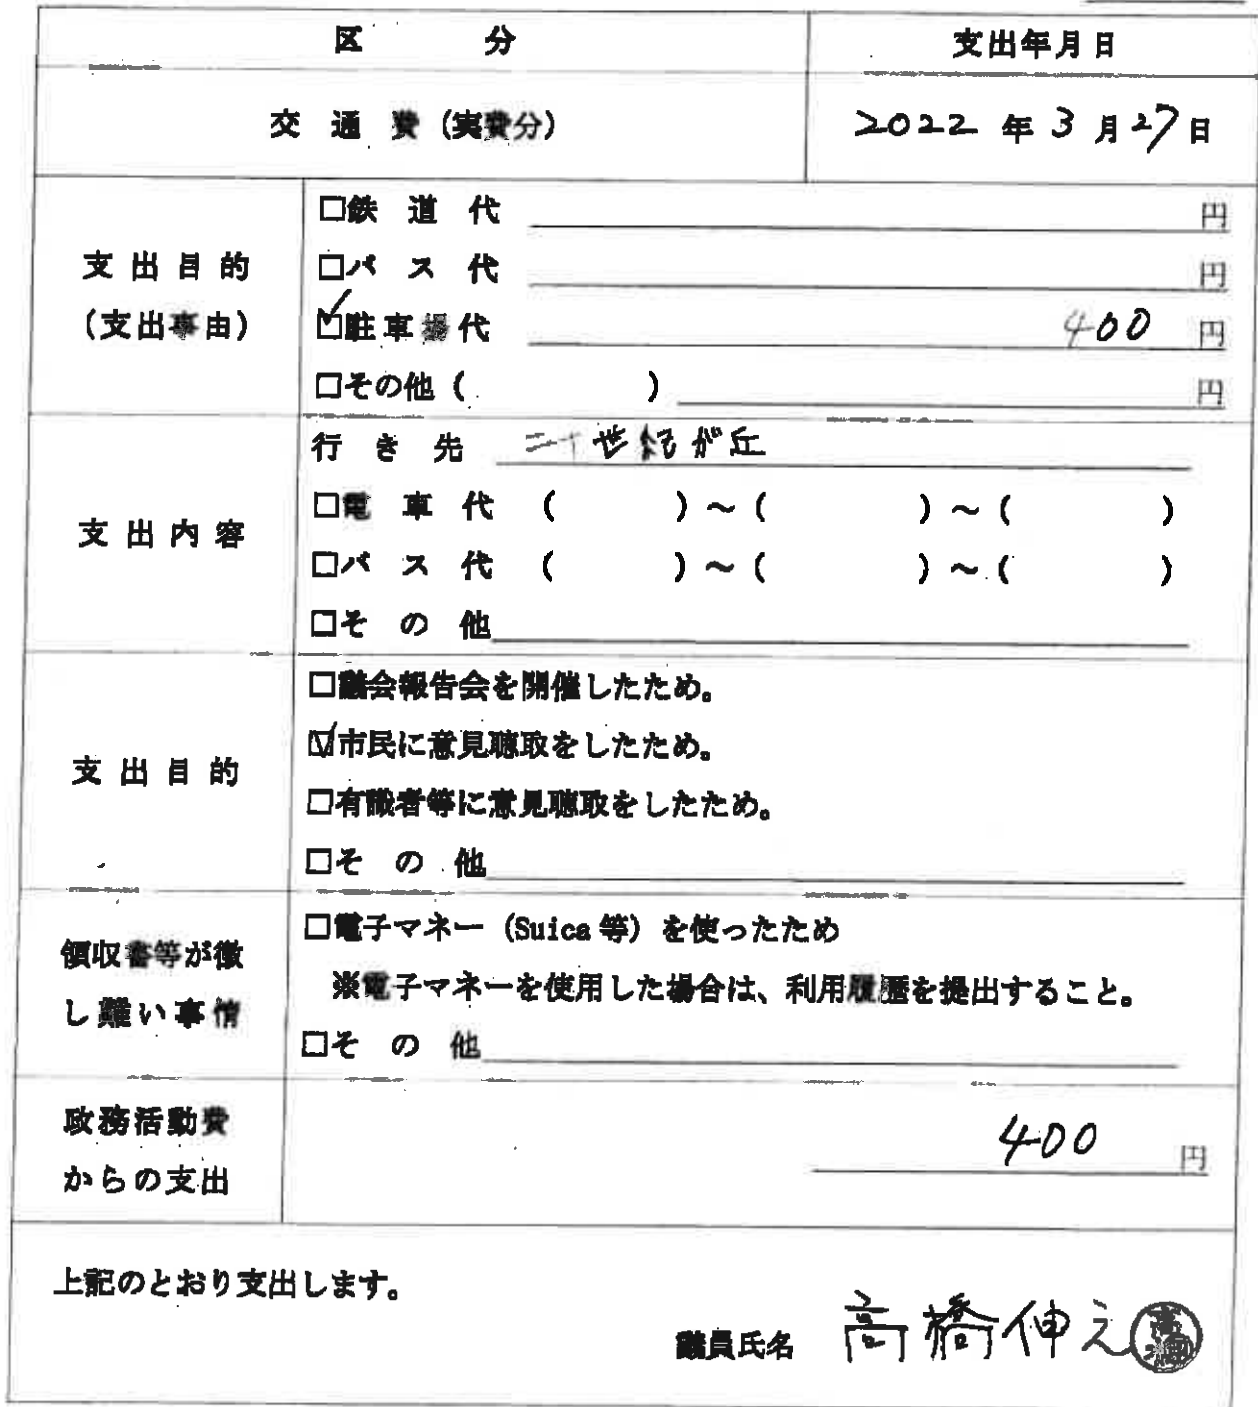 区 分 支出年月日
交 通 費 (実費分) 2022 年 3 月 27 日
支出目的
(支出事由)
□鉄 道 代 円
□バ ス 代 円
☑駐車場代 400 円
□その他 ( ) 円
支出内容
行 き 先 二十世紀が丘
□電 車 代 ( ) ~ ( ) ~ ( )
□バ ス 代 ( ) ~ ( ) ~ ( )
□そ の 他
支出目的
□議会報告会を開催したため。
☑市民に意見聴取をしたため。
□有識者等に意見聴取をしたため。
□そ の 他
領収書等が徴
し難い事情
□電子マネー (Suica 等) を使ったため
※電子マネーを使用した場合は、利用履歴を提出すること。
□そ の 他
政務活動費
からの支出
400 円
上記のとおり支出します。
議員氏名 高橋伸之 高橋